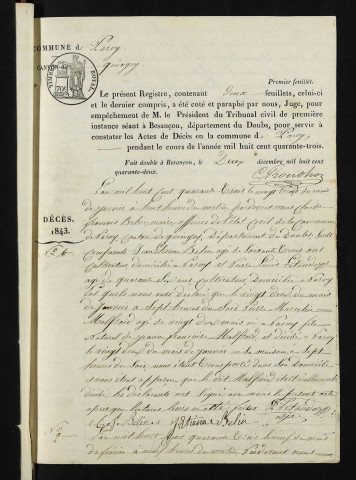 COMMUNE de Paroy
CANTON de Quingey
TIMBRE ROYAL
Premier feuillet.
Le présent Registre, contenant deux feuillets, celui-ci
et le dernier compris, a été coté et paraphé par nous, Juge, pour
empêchement de M. le Président du Tribunal civil de première
instance séant à Besançon, département du Doubs, pour servir à
constater les Actes de Décès en la commune d Paroy
pendant le cours de l'année mil huit cent quarante-trois.
Fait double à Besançon, le Deux décembre mil huit cent
quarante-deux.
DÉCÈS.
1843.
L'an mil huit cent quarante trois le vingt trois du mois
de janvier à huit heures du matin pardevant nous
françois Belin maire officier de l'état civil de la commune
de Paroy canton de quingey, Département du Doubs, sont
comparus Jean Etienne Belin agé de soixante trois ans
cultivateur domicilié à Paroy et
agé de quarante ans cultivateur domicilié à Paroy
les quels nous ont déclaré que le vingt deux du mois
de janvier à sept heures du soir Pierre
agé de vingt deux mois né à Paroy fils
naturel de jeanne françoise décédé à Paroy
le vingt deux du mois de janvier en sa maison à sept
heures du soir, nous étant transporté dans son domicile
nous nous
décédé les déclarants ont signé avec nous le présent acte
après que lecture leur en a été faite
Etienne Belin
L'an mil huit cent quarante trois le neuf du mois
de février à neuf heures du matin pardevant nous